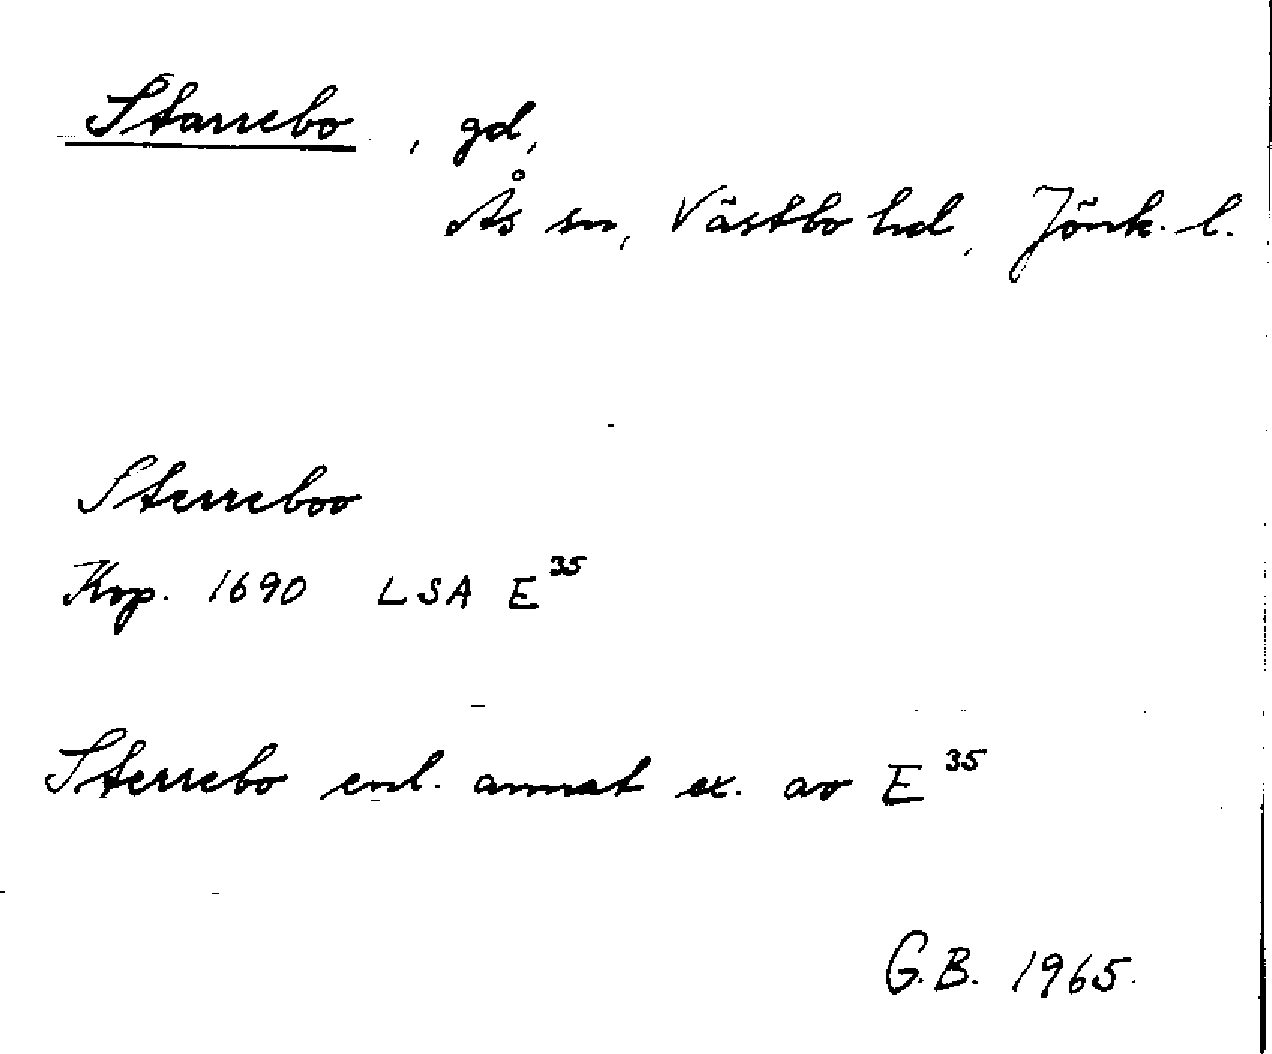 Starrebo, gd,
Ås sn, Västbo hd, Jönk. l.
Sterreboo
Kop. 1690 LSA E³⁵
Sterrebo enl. annat ex. av E³⁵
G.B. 1965.